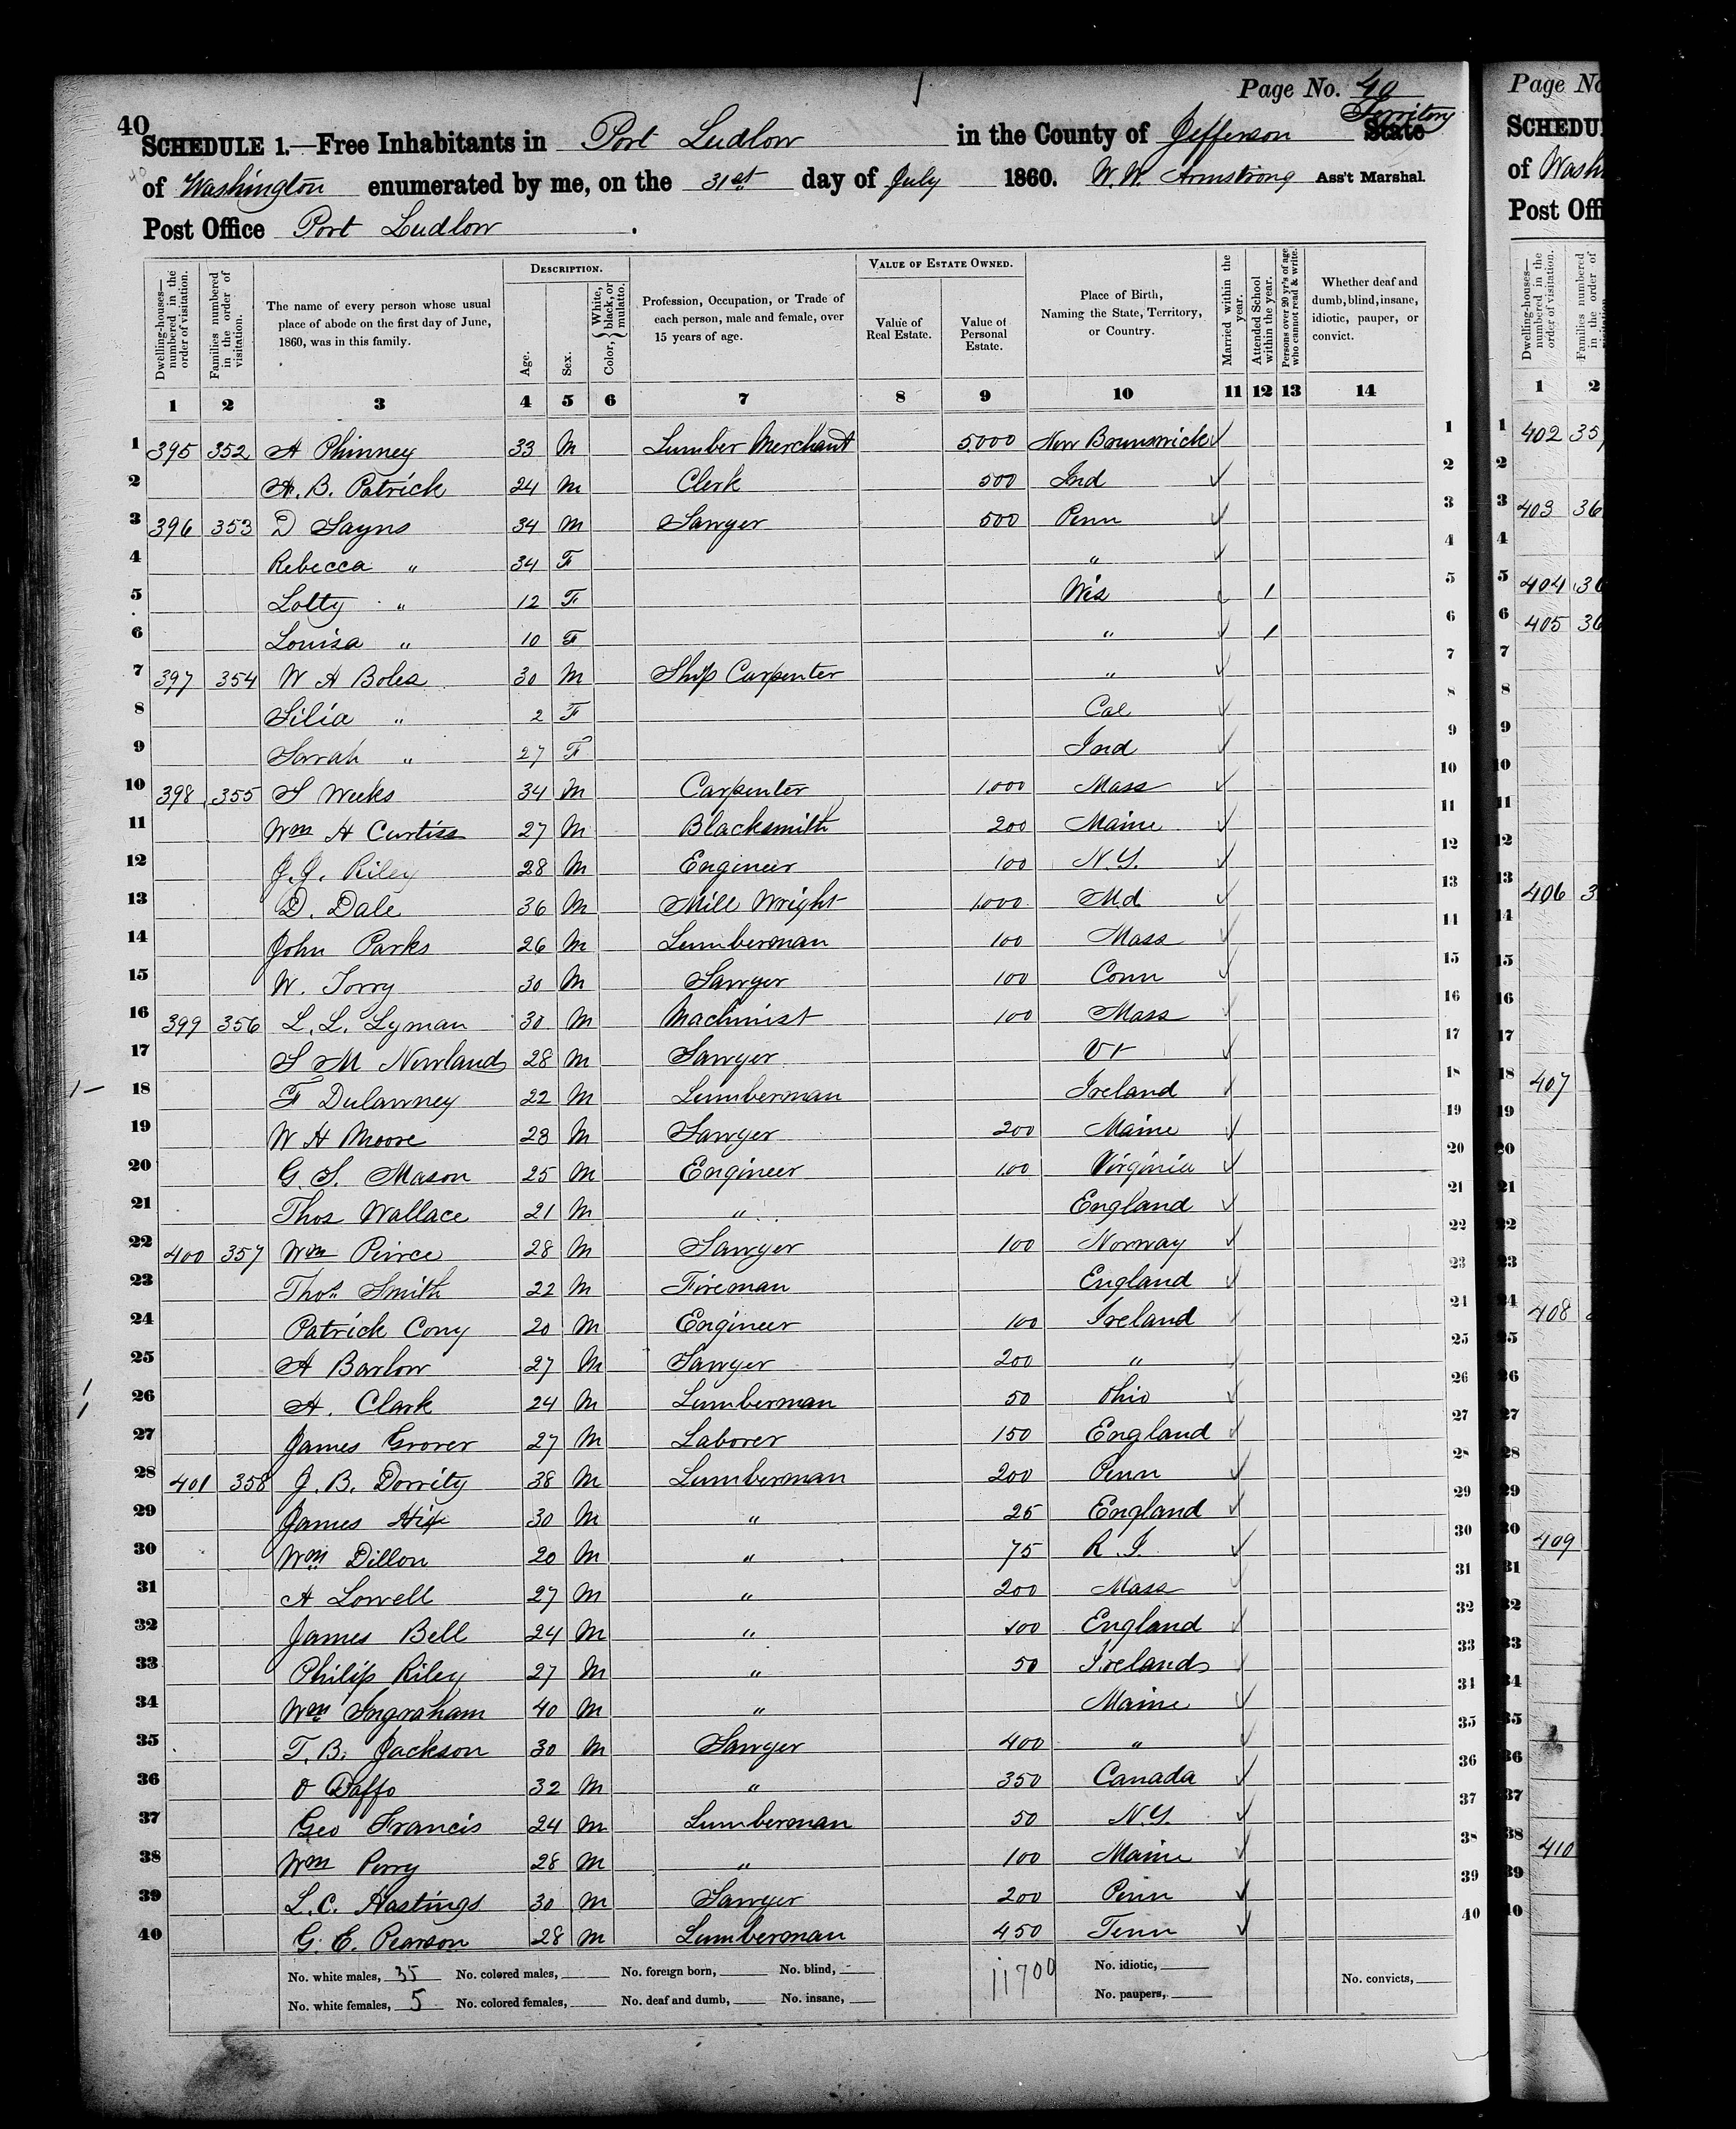 Page No. 40
40
SCHEDULE 1.—Free Inhabitants in Port Ludlow in the County of Jefferson State Territory
of Washington enumerated by me, on the 31st day of July 1860. W. W. Armstrong Ass't Marshal.
Post Office Port Ludlow.
Dwelling-houses—numbered in the order of visitation.
Families numbered in the order of visitation.
The name of every person whose usual place of abode on the first day of June, 1860, was in this family.
DESCRIPTION.
Age.
Sex.
Color, { White, black, or mulatto.
Profession, Occupation, or Trade of each person, male and female, over 15 years of age.
VALUE OF ESTATE OWNED.
Value of Real Estate.
Value of Personal Estate.
Place of Birth, Naming the State, Territory, or Country.
Married within the year.
Attended School within the year.
Persons over 20 yr's of age who cannot read & write.
Whether deaf and dumb, blind, insane, idiotic, pauper, or convict.
1 2 3 4 5 6 7 8 9 10 11 12 13 14
1 395 352 A Phinney 33 M Lumber Merchant 5000 New Brunswick 1
2 A. B. Patrick 24 M Clerk 500 Ind 2
3 396 353 D Sayns 34 M Sawyer 500 Penn 3
4 Rebecca " 34 F " 4
5 Lotty " 12 F Wis 1 5
6 Louisa " 10 F " 1 6
7 397 354 W A Boles 30 M Ship Carpenter " 7
8 Silia " 2 F Cal 8
9 Sarrah " 27 F Ind 9
10 398 355 S Weeks 34 M Carpenter 1000 Mass 10
11 Wm H Curtiss 27 M Blacksmith 200 Maine 11
12 J. J. Riley 28 M Engineer 100 N.Y. 12
13 D. Dale 36 M Mill Wright 1000 Md 13
14 John Parks 26 M Lumberman 100 Mass 14
15 W. Torry 30 M Sawyer 100 Conn 15
16 399 356 L. L. Lyman 30 M Machinist 100 Mass 16
17 S M Newland 28 M Sawyer Vt 17
18 F Dulanney 22 M Lumberman Ireland 18
19 W H Moore 28 M Sawyer 200 Maine 19
20 G. S. Mason 25 M Engineer 100 Virginia 20
21 Thos Wallace 21 M " England 21
22 400 357 Wm Peirce 28 M Sawyer 100 Norway 22
23 Thos Smith 22 M Fireman England 23
24 Patrick Cony 20 M Engineer 100 Ireland 24
25 A Barlow 27 M Sawyer 200 " 25
26 A. Clark 24 M Lumberman 50 Ohio 26
27 James Grover 27 M Laborer 150 England 27
28 401 358 J. B. Dorrity 38 M Lumberman 200 Penn 28
29 James Hix 30 M " 25 England 29
30 Wm Dillon 20 M " 75 R.I. 30
31 A Lowell 27 M " 200 Mass 31
32 James Bell 24 M " 100 England 32
33 Philip Riley 27 M " 50 Ireland 33
34 Wm Ingraham 40 M " Maine 34
35 T. B. Jackson 30 M Sawyer 400 " 35
36 O Daffo 32 M " 350 Canada 36
37 Geo Francis 24 M Lumberman 50 N.Y. 37
38 Wm Perry 28 M " 100 Maine 38
39 L. C. Hastings 30 M Sawyer 200 Penn 39
40 G. E. Pearson 28 M Lumberman 450 Tenn 40
No. white males, 35 No. colored males, No. foreign born, No. blind, 11700 No. idiotic, No. convicts,
No. white females, 5 No. colored females, No. deaf and dumb, No. insane, No. paupers,
Page No
SCHEDU
of Wash
Post Offi
Dwelling-houses—numbered in the order of visitation.
Families numbered in the order of
1 2
1 402 35
2
3 403 36
4
5 404 36
6 405 36
7
8
9
10
11
12
13 406 3
14
15
16
17
18 407
19
20
21
22
23
24 408
25
26
27
28
29
30 409
31
32
33
34
35
36
37
38 410
39
40